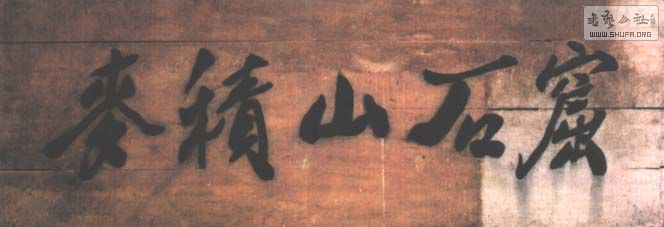 麥積山石窟
書藝公社
WWW.SHUFA.ORG